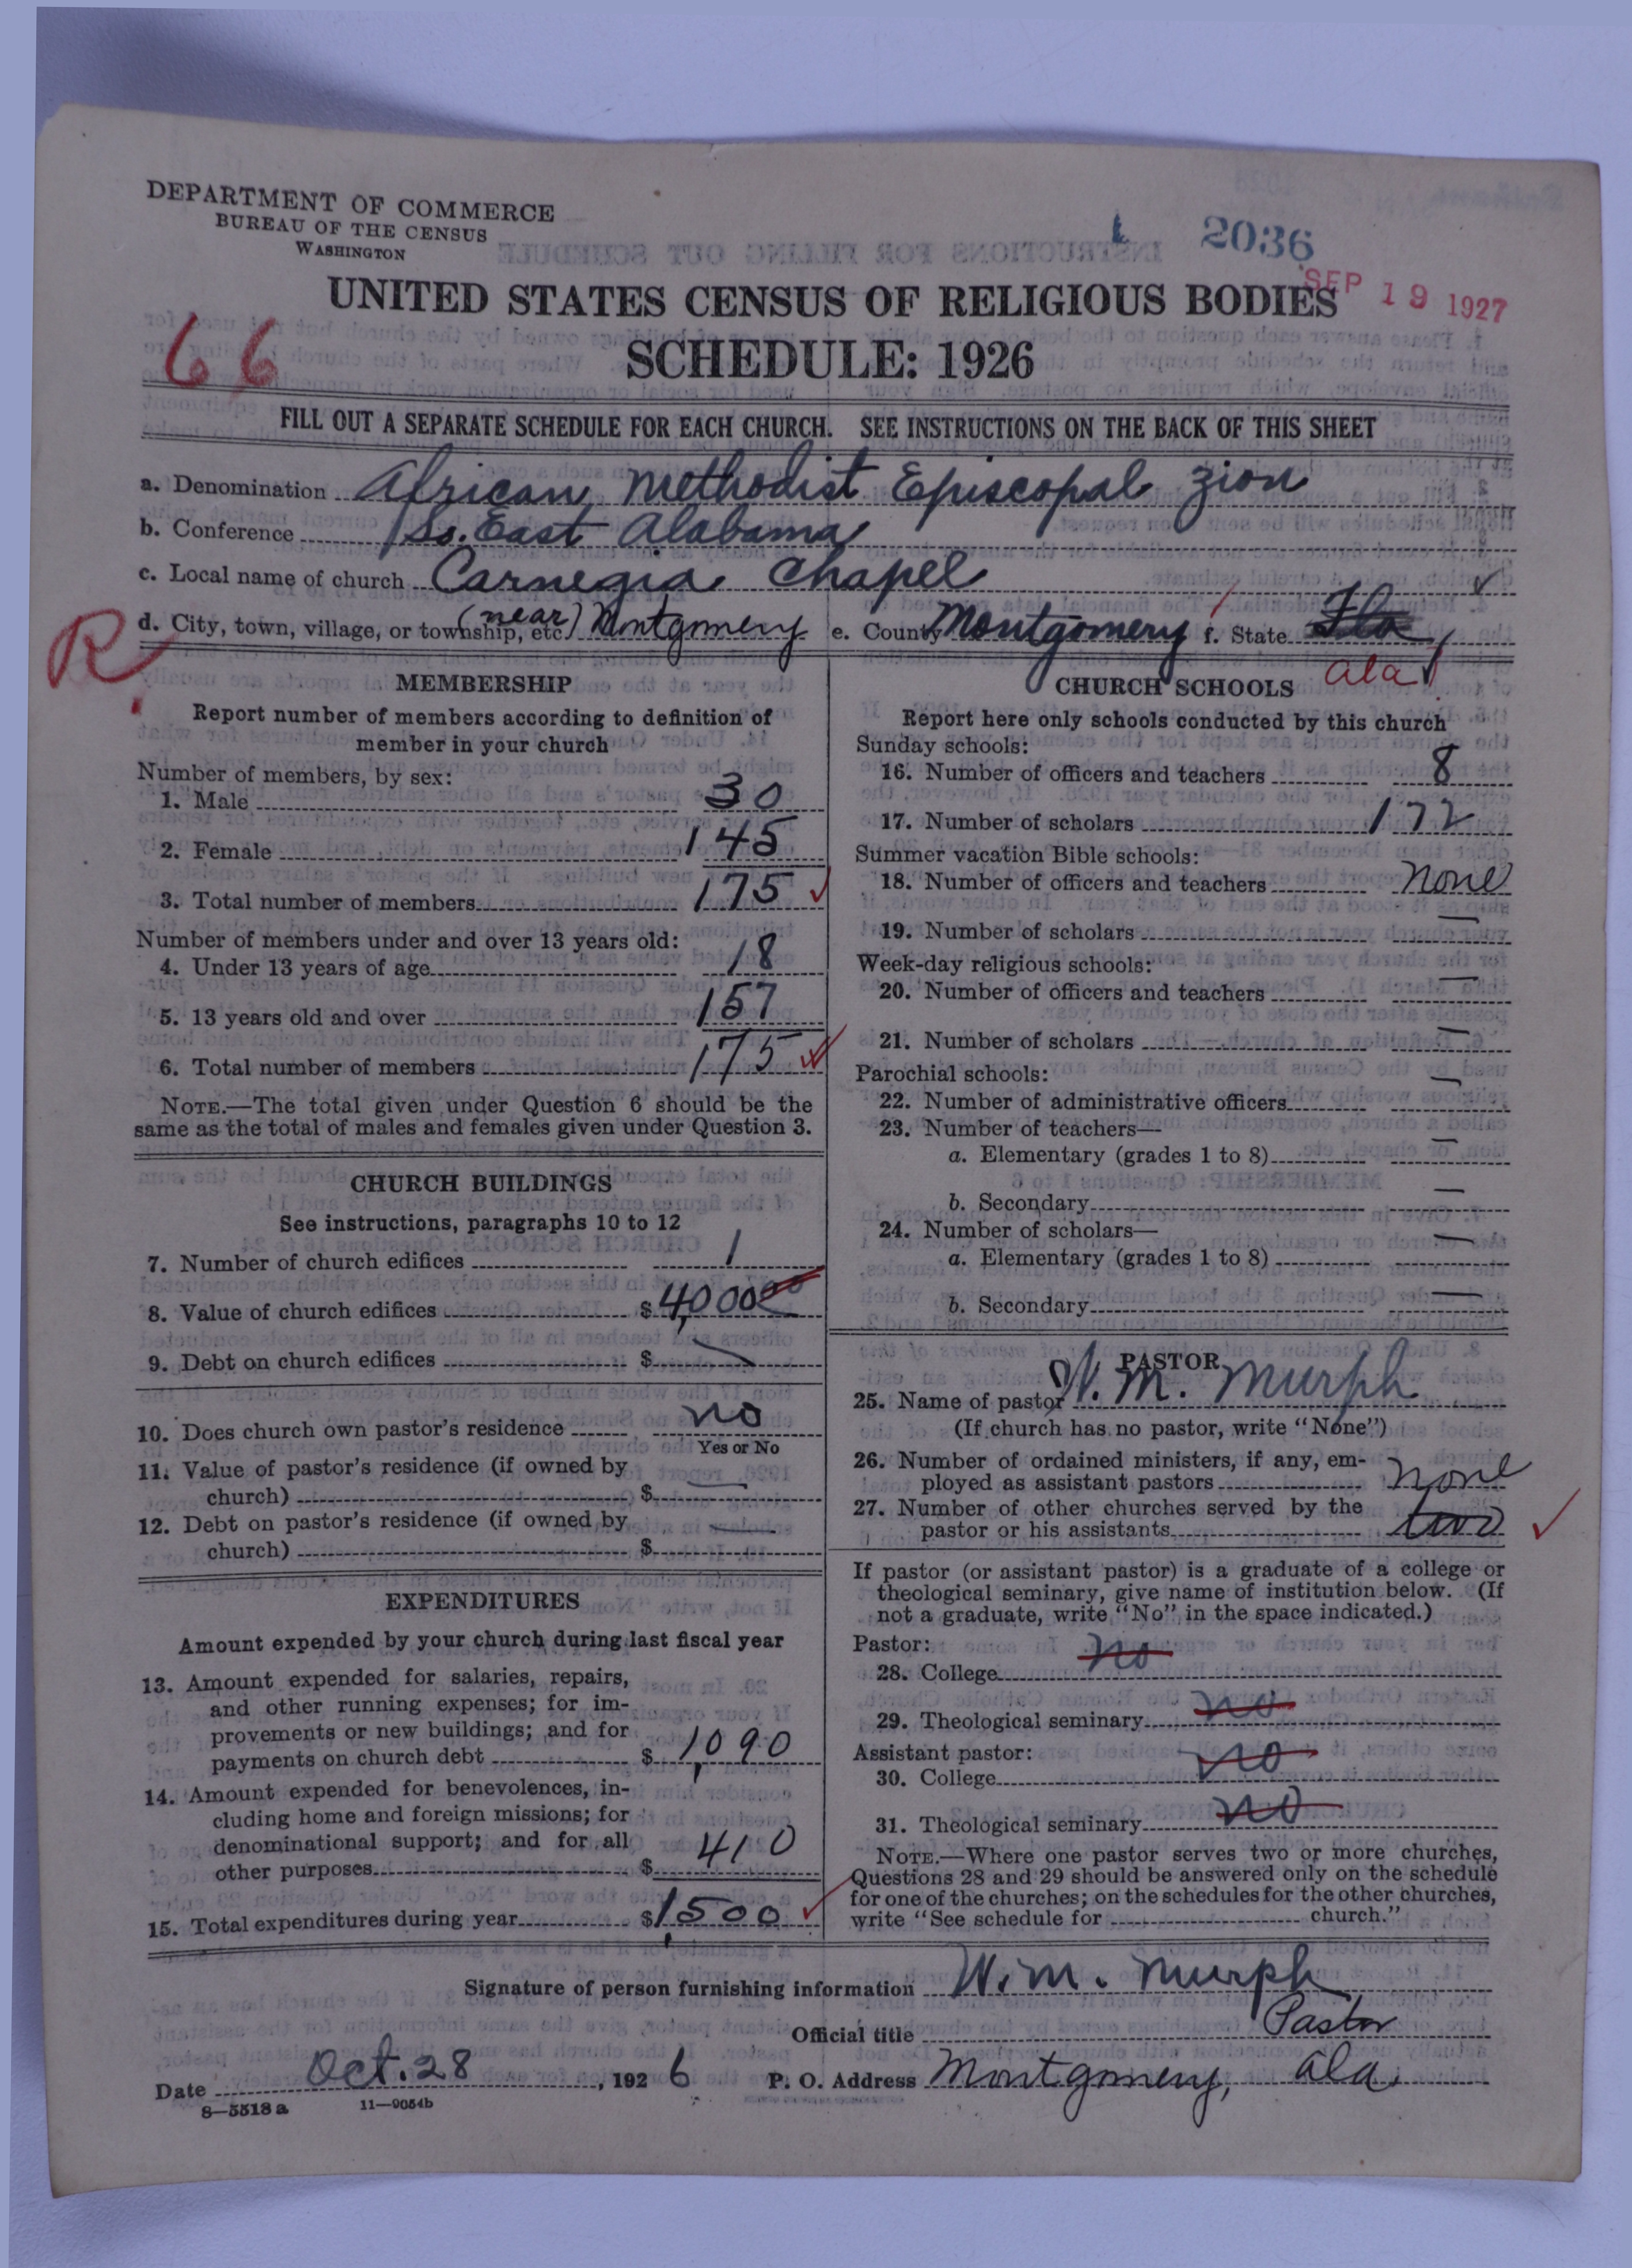 DEPARTMENT OF COMMERCE
BUREAU OF THE CENSUS
WASHINGTON
2036
SEP 19 1927
UNITED STATES CENSUS OF RELIGIOUS BODIES
66
SCHEDULE: 1926
FILL OUT A SEPARATE SCHEDULE FOR EACH CHURCH. SEE INSTRUCTIONS ON THE BACK OF THIS SHEET
a. Denomination African Methodist Episcopal Zion
b. Conference So. East Alabama
c. Local name of church Carnegia Chapel
d. City, town, village, or township, etc. (near) Montgomery e. County Montgomery f. State Fla
R.
Ala
MEMBERSHIP
Report number of members according to definition of
member in your church
Number of members, by sex:
1. Male 30
2. Female 145
3. Total number of members 175
Number of members under and over 13 years old:
4. Under 13 years of age 18
5. 13 years old and over 157
6. Total number of members 175
NOTE.—The total given under Question 6 should be the
same as the total of males and females given under Question 3.
CHURCH BUILDINGS
See instructions, paragraphs 10 to 12
7. Number of church edifices 1
8. Value of church edifices $4,000 00
9. Debt on church edifices $ —
10. Does church own pastor's residence no
Yes or No
11. Value of pastor's residence (if owned by
church) $ —
12. Debt on pastor's residence (if owned by
church) $ —
EXPENDITURES
Amount expended by your church during last fiscal year
13. Amount expended for salaries, repairs,
and other running expenses; for im-
provements or new buildings; and for
payments on church debt $ 1,090
14. Amount expended for benevolences, in-
cluding home and foreign missions; for
denominational support; and for all
other purposes $ 410
15. Total expenditures during year $1,500
CHURCH SCHOOLS
Report here only schools conducted by this church
Sunday schools:
16. Number of officers and teachers 8
17. Number of scholars 172
Summer vacation Bible schools:
18. Number of officers and teachers none
19. Number of scholars —
Week-day religious schools:
20. Number of officers and teachers —
21. Number of scholars —
Parochial schools:
22. Number of administrative officers —
23. Number of teachers—
a. Elementary (grades 1 to 8) —
b. Secondary —
24. Number of scholars—
a. Elementary (grades 1 to 8) —
b. Secondary —
PASTOR
25. Name of pastor W. M. Murph
(If church has no pastor, write "None")
26. Number of ordained ministers, if any, em-
ployed as assistant pastors none
27. Number of other churches served by the
pastor or his assistants two
If pastor (or assistant pastor) is a graduate of a college or
theological seminary, give name of institution below. (If
not a graduate, write "No" in the space indicated.)
Pastor:
28. College no
29. Theological seminary no
Assistant pastor:
30. College no
31. Theological seminary no
NOTE.—Where one pastor serves two or more churches,
Questions 28 and 29 should be answered only on the schedule
for one of the churches; on the schedules for the other churches,
write "See schedule for church."
Signature of person furnishing information W. M. Murph
Official title Pastor
Date Oct. 28, 1926 P. O. Address Montgomery, Ala.
8—5518 a 11—9054b